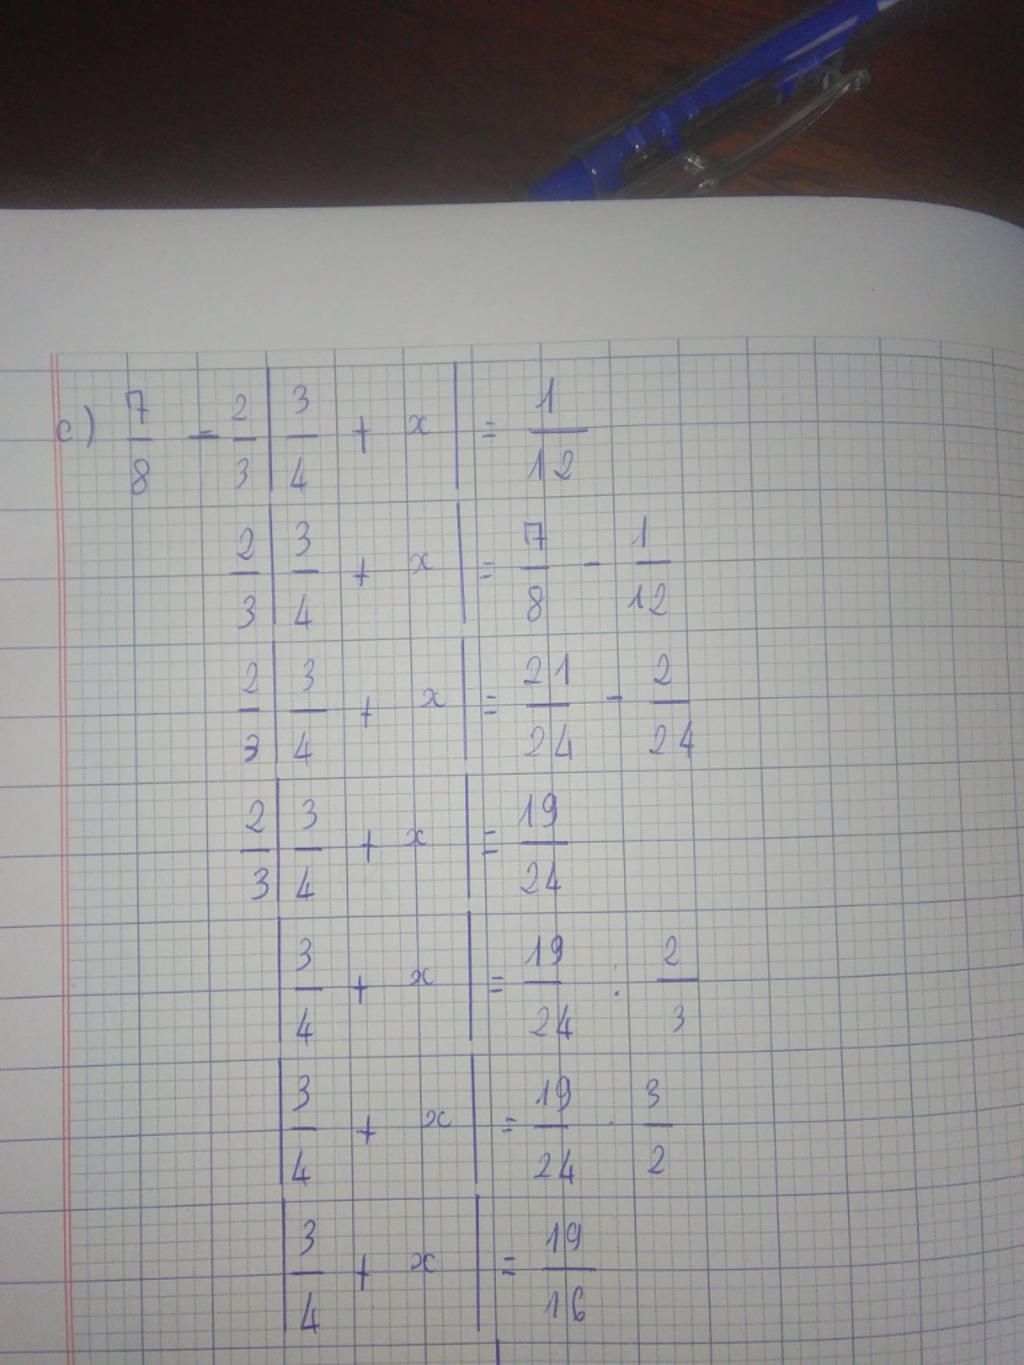 c) 7/8 - 2/3 |3/4 + x| = 1/12
2/3 |3/4 + x| = 7/8 - 1/12
2/3 |3/4 + x| = 21/24 - 2/24
2/3 |3/4 + x| = 19/24
|3/4 + x| = 19/24 : 2/3
|3/4 + x| = 19/24 . 3/2
|3/4 + x| = 19/16